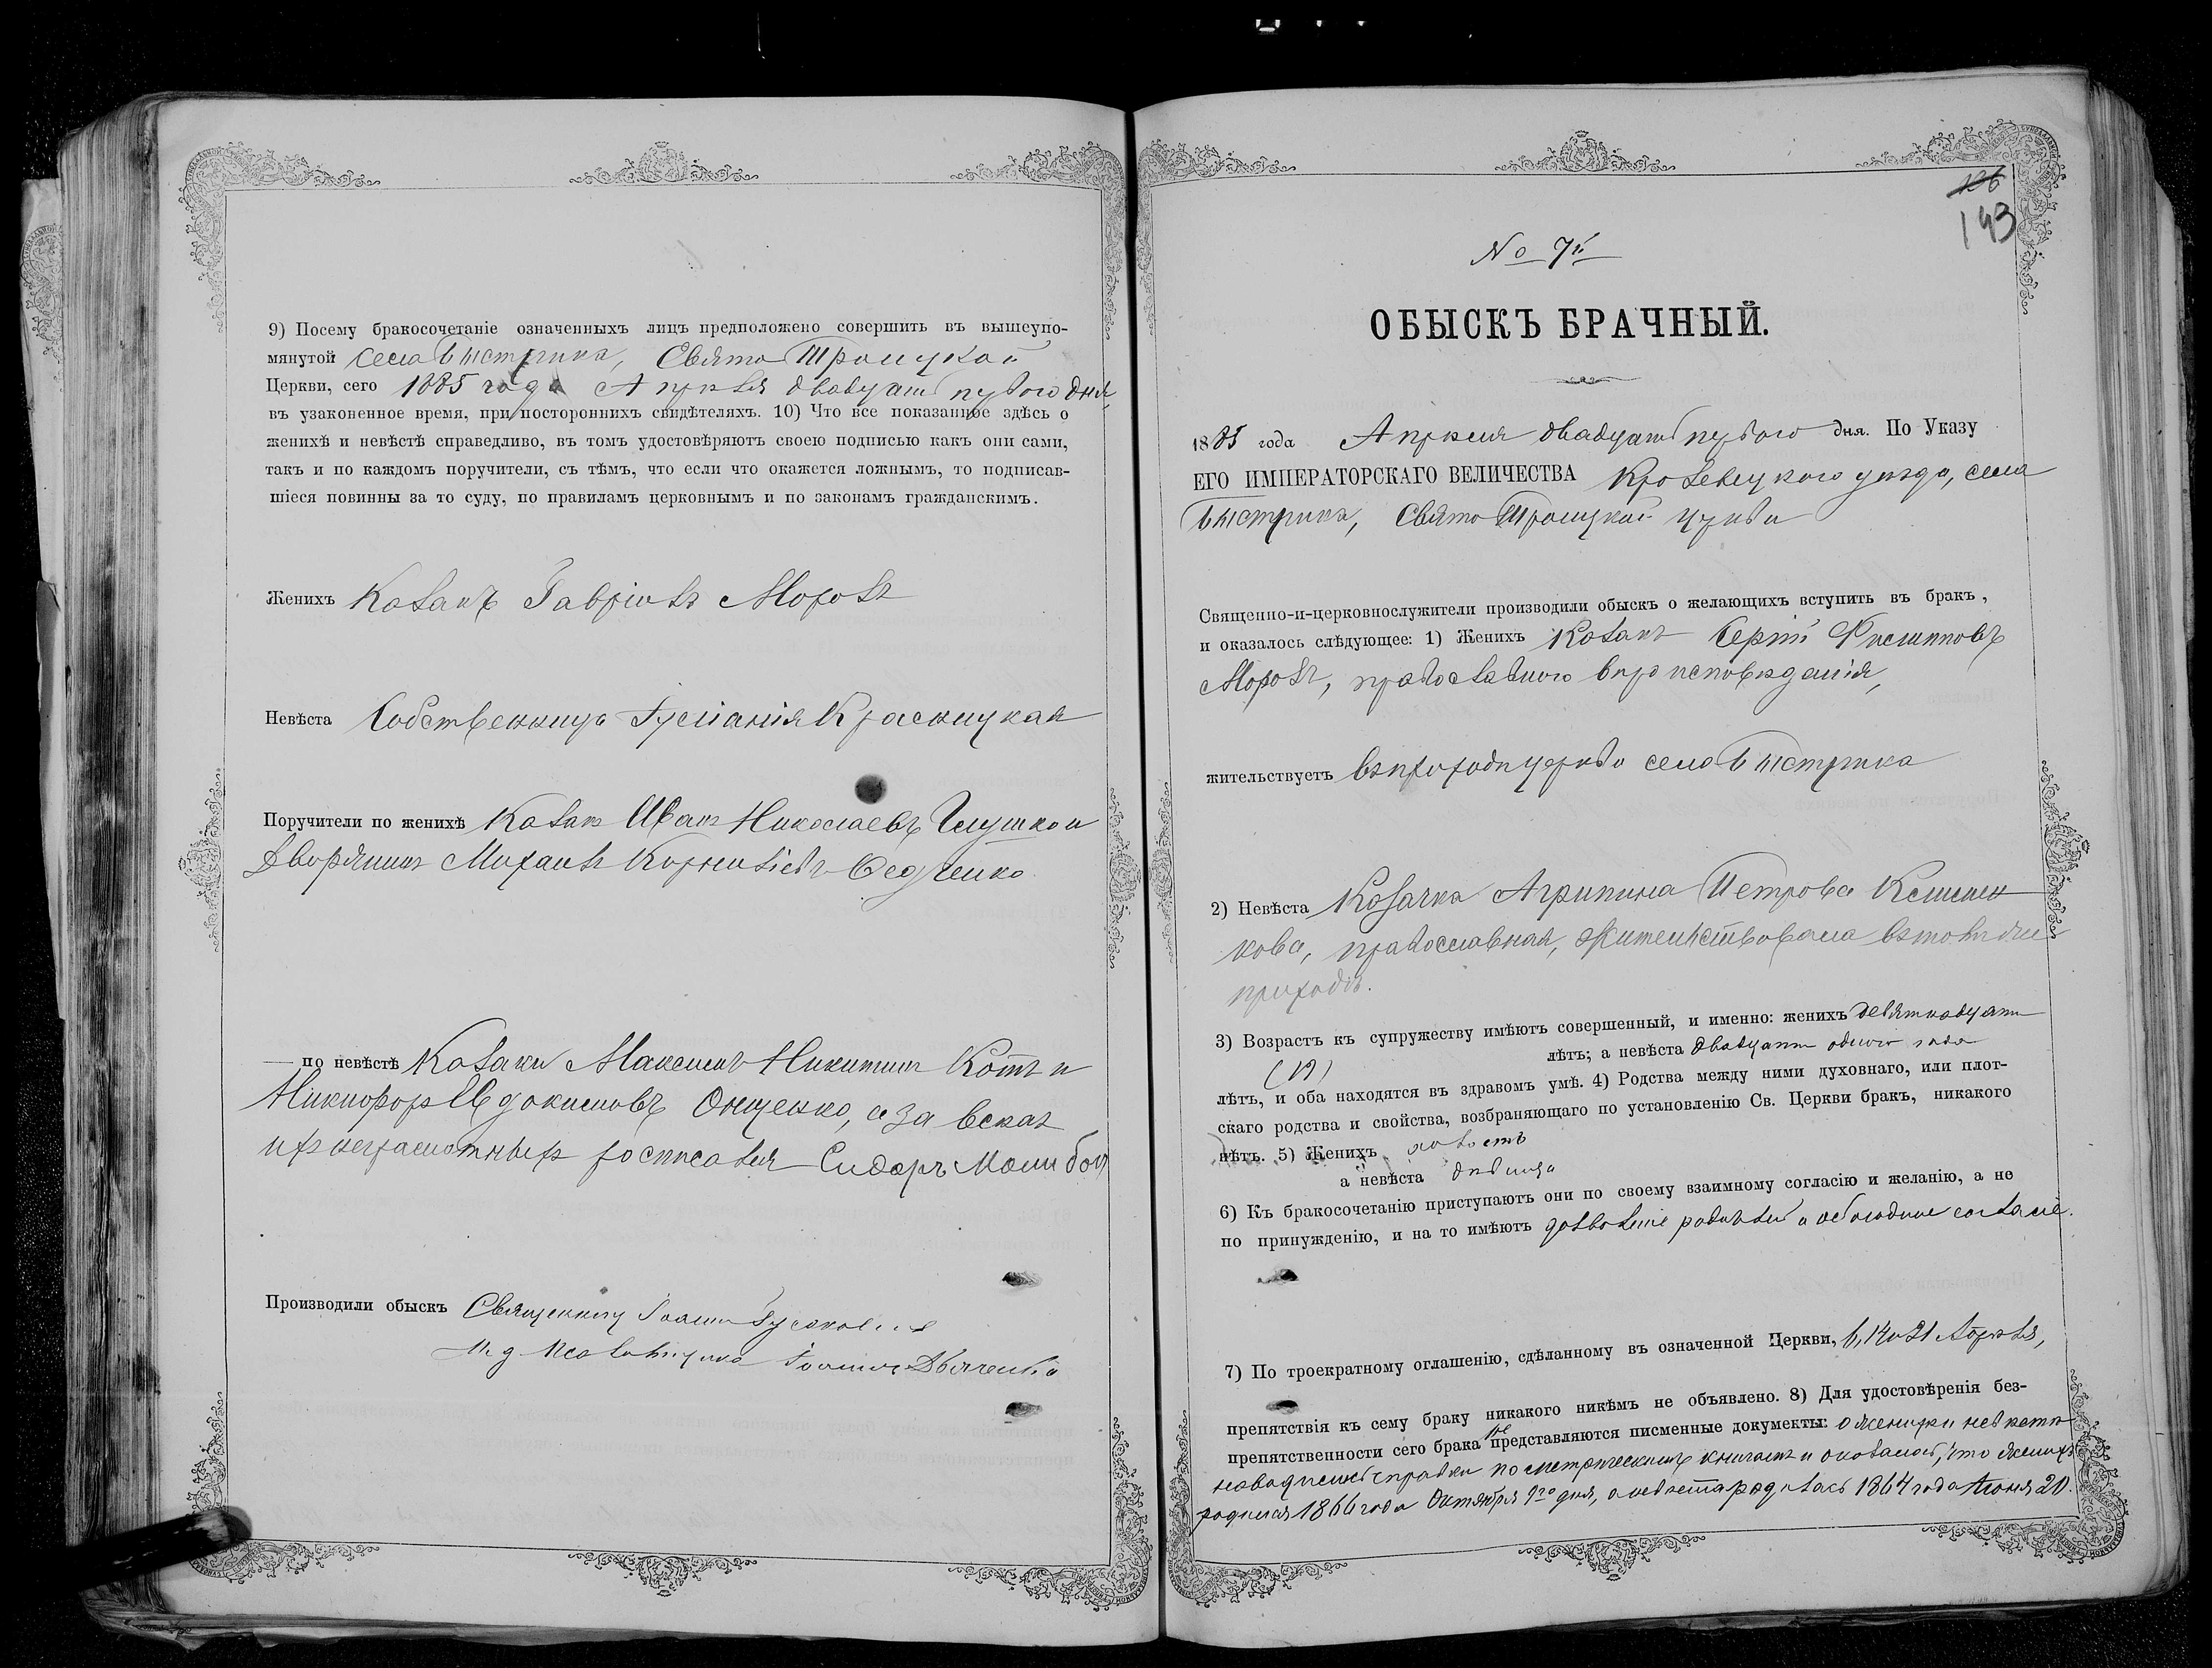 9) Посему бракосочетаніе означенныхъ лицъ предположено совершить въ вышеупо-
мянутой села Быстрика, Свято Троицкой
Церкви, сего 1885 года Апрѣля двадцать первого дня,
въ узаконенное время, при постороннихъ свидѣтеляхъ. 10) Что все показанное здѣсь о
женихѣ и невѣстѣ справедливо, въ томъ удостовѣряютъ своею подписью какъ они сами,
такъ и по каждомъ поручители, съ тѣмъ, что если что окажется ложнымъ, то подписав-
шіеся повинны за то суду, по правиламъ церковнымъ и по законамъ гражданскимъ.
Женихъ Козакъ Гавріилъ Морозъ
Невѣста Собственница Іуліанія Красницкая
Поручители по женихѣ Козакъ Иванъ Николаевъ Глушко и
Дворянинъ Михаилъ Корниліевъ Федченко
— по невѣстѣ Козаки Максимъ Никитинъ Котъ и
Никифоръ Евдокимовъ Онищенко, а за всѣхъ
ихъ неграмотныхъ росписался Сидоръ
Производили обыскъ Священникъ Іоаннъ
И. д. Псаломщика Іоаннъ Дьяченко
126
143
No 7й
ОБЫСКЪ БРАЧНЫЙ.
1885 года Апрѣля двадцать первого дня. По Указу
ЕГО ИМПЕРАТОРСКАГО ВЕЛИЧЕСТВА Кролевецкого уезда, села
Быстрика, Свято Троицкой церкви
Священно-и-церковнослужители производили обыскъ о желающихъ вступить въ бракъ,
и оказалось слѣдующее: 1) Женихъ Козакъ Сергій Филипповъ
Морозъ, православного вѣроисповѣданія,
жительствуетъ въ приходѣ церкви села Быстрика
2) Невѣста Козачка Агрипина Петрова Клишен
кова, православная, жительствовала въ томъ же
приходѣ.
3) Возрастъ къ супружеству имѣютъ совершенный, и именно: женихъ девятнадцати
(19) лѣтъ; а невѣста двадцати одного года
лѣтъ, и оба находятся въ здравомъ умѣ. 4) Родства между ними духовнаго, или плот-
скаго родства и свойства, возбраняющаго по установленію Св. Церкви бракъ, никакого
нѣтъ. 5) Женихъ холостъ
а невѣста дѣвица
6) Къ бракосочетанію приступаютъ они по своему взаимному согласію и желанію, а не
по принужденію, и на то имѣютъ дозволеніе родителей и обоюдное согласіе.
7) По троекратному оглашенію, сдѣланному въ означенной Церкви, 6, 14 и 21 Апрѣля,
препятствія къ сему браку никакого никѣмъ не объявлено. 8) Для удостовѣренія без-
препятственности сего брака не представляются писменные документы: о женихѣ и невѣстѣ
наводились справки по метрическимъ книгамъ и оказалось, что женихъ
родился 1866 года Октября 9го дня, а невѣста родилась 1864 года Іюня 20.